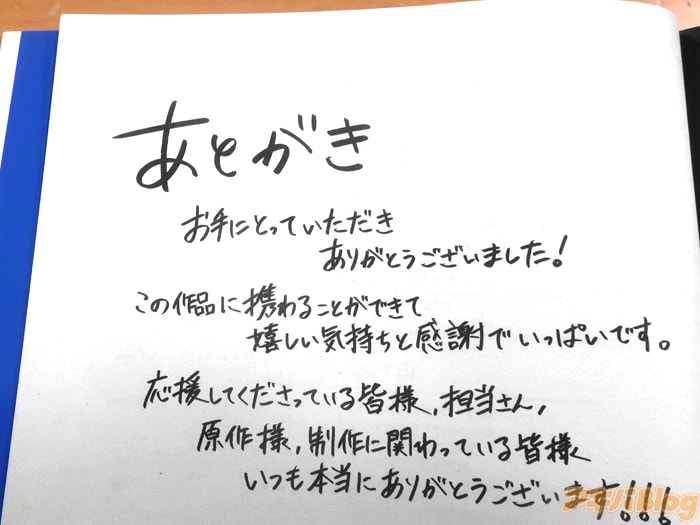 あとがき
お手にとっていただき
ありがとうございました!
この作品に携わることができて
嬉しい気持ちと感謝でいっぱいです。
応援してくださっている皆様,担当さん,
原作様,制作に関わっている皆様
いつも本当にありがとうございます!!!
アキバBlog